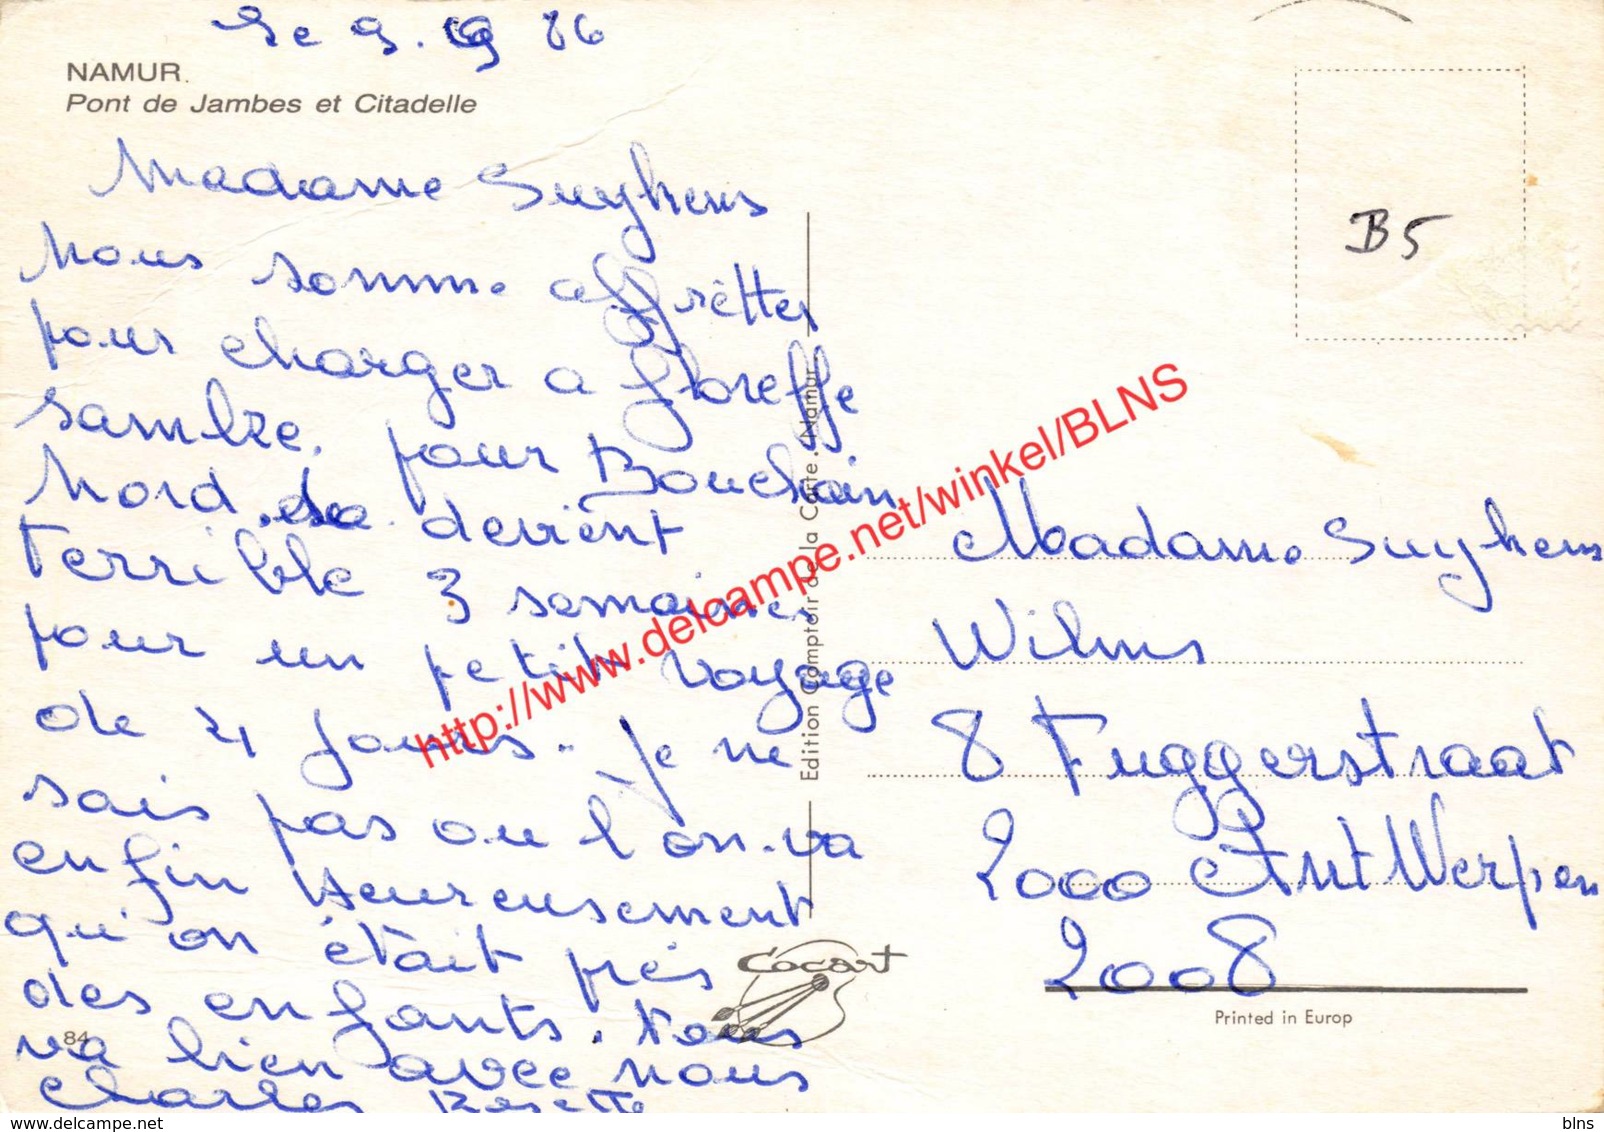 Le 9. 9 86
NAMUR.
Pont de Jambes et Citadelle
Madame Suykens
Nous somme affrèttes
pour charger a floreffe
Sambre. pour Bouchain
Nord. devient
terrible 3 semaines
pour un petit voyage
de 4 jours. je ne
sais pas ou l'on va
enfin heureusement
qu'on était près
des enfants. tous
va bien avec nous
Charles Rosette
84
Edition Comptoir de la Carte. Namur
Cocart
B5
Madame Suykens
Wilms
8 Fuggerstraat
2000 AntWerpen
2008
Printed in Europ
http://www.delcampe.net/winkel/BLNS
www.delcampe.net
blns